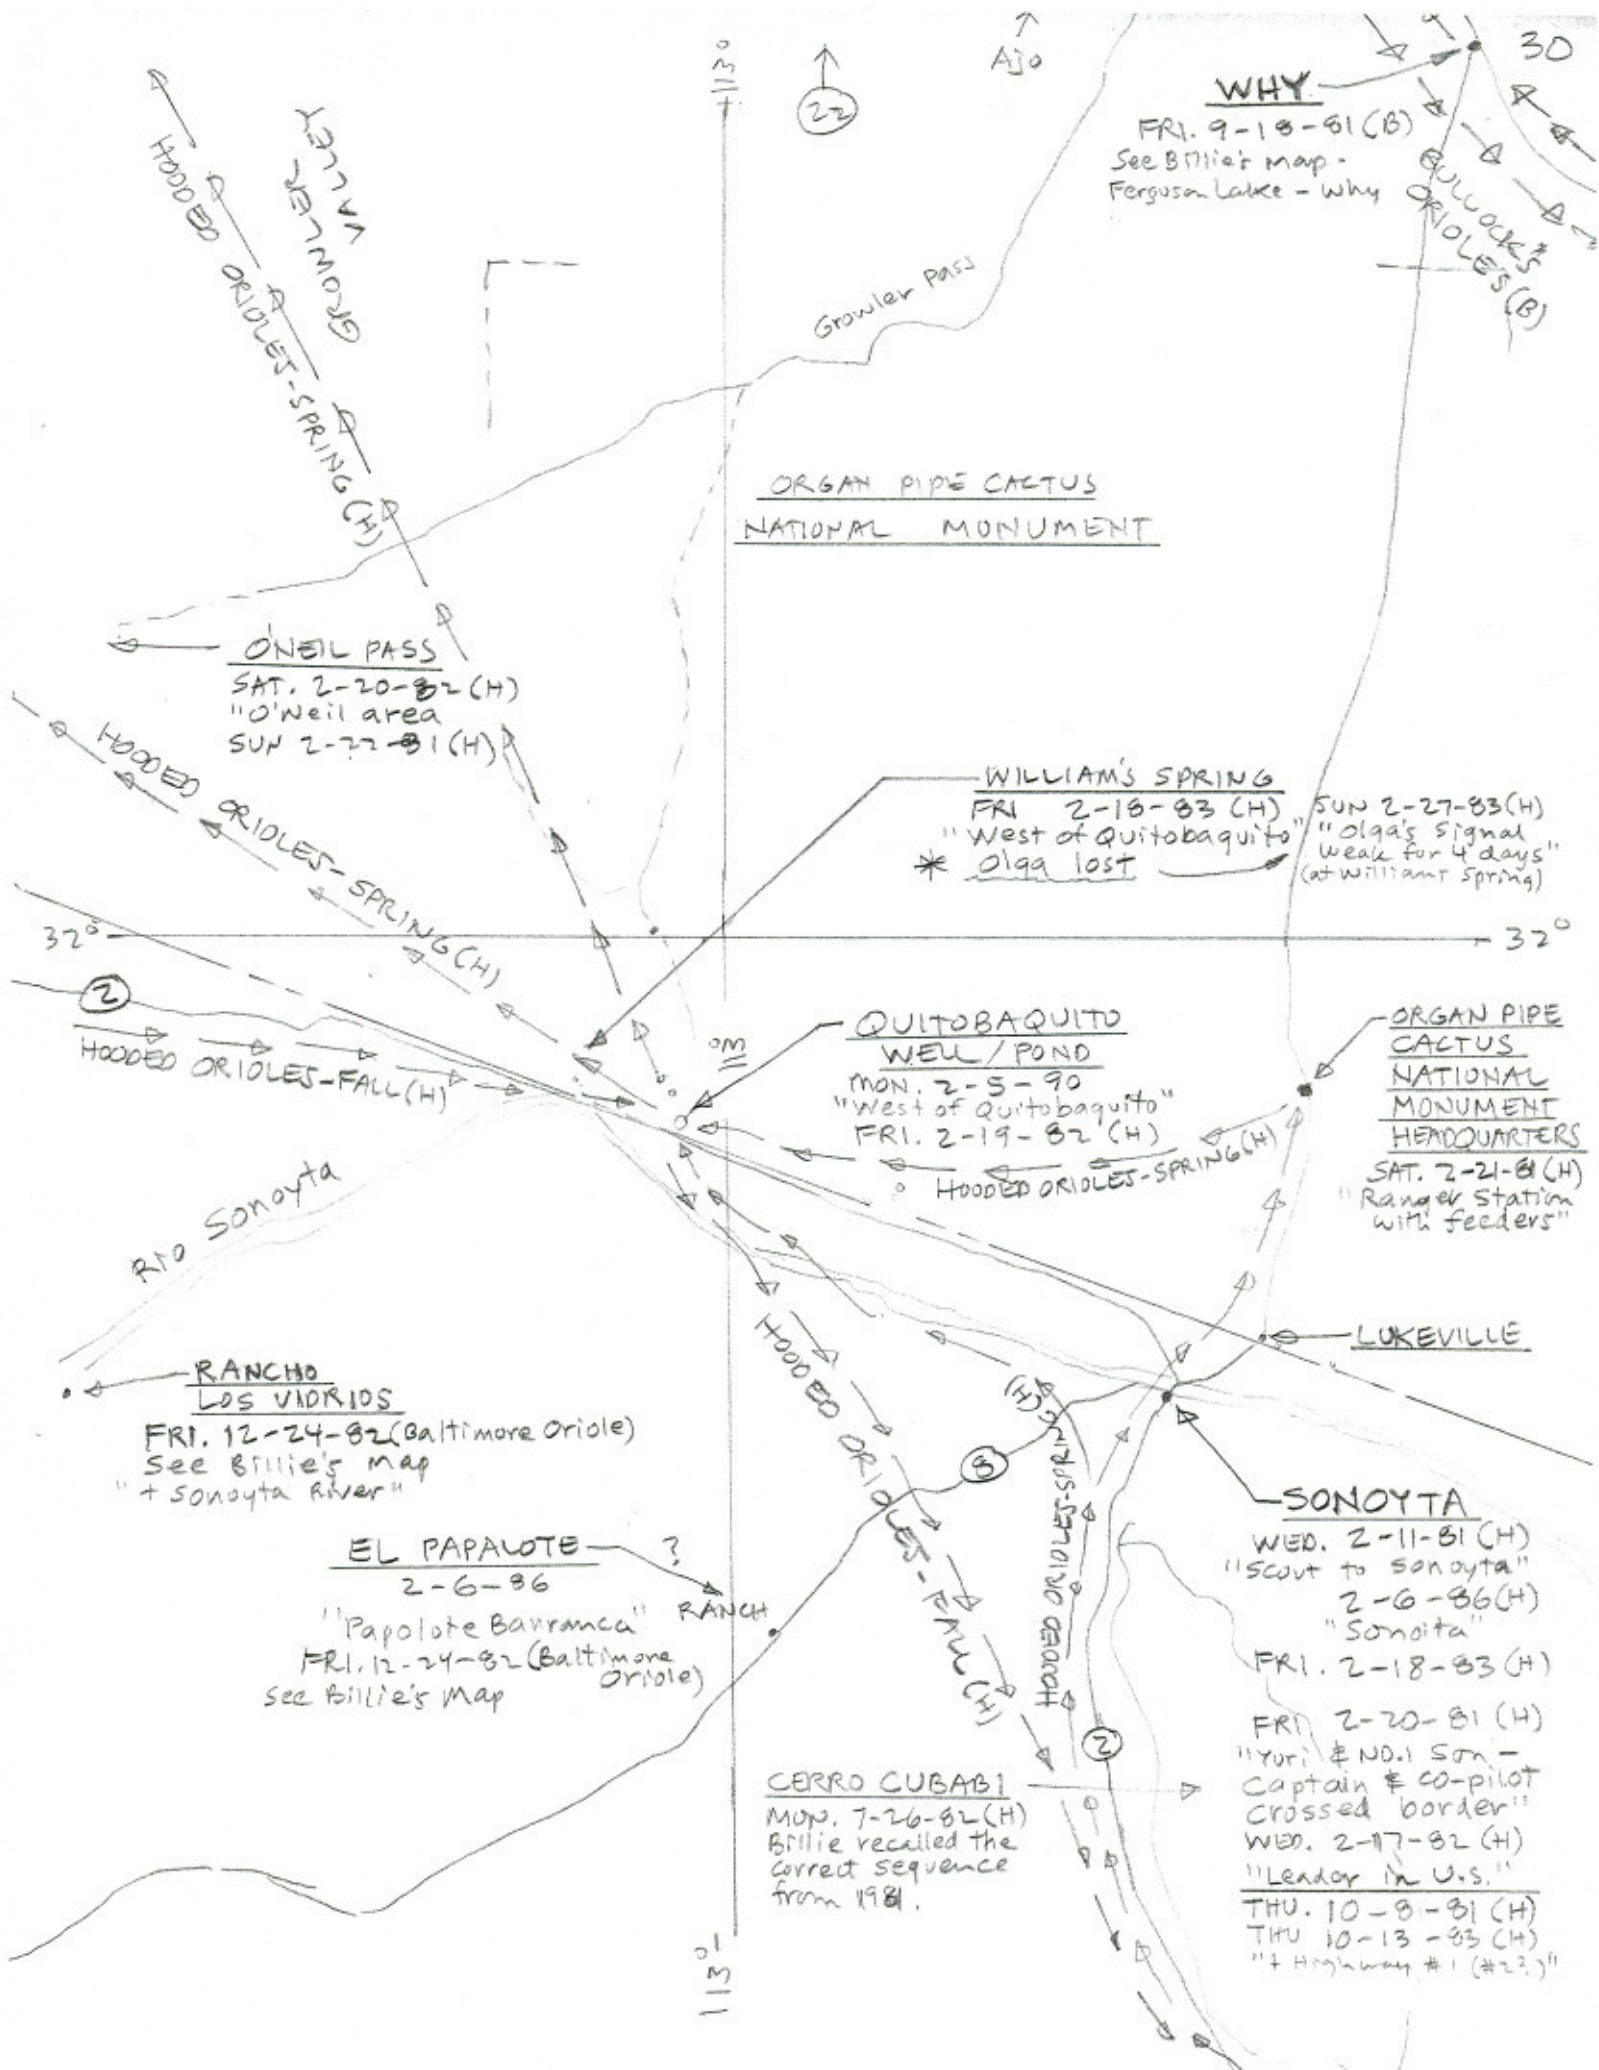 30
Ajo
113°
22
WHY
FRI. 9-18-81 (B)
See Billie's map -
Ferguson Lake - Why
BULLOCK'S
ORIOLES (B)
GROWLER
VALLEY
HOODED ORIOLES-SPRING (H)
Growler Pass
ORGAN PIPE CACTUS
NATIONAL MONUMENT
O'NEIL PASS
SAT. 2-20-82 (H)
"O'Neil area
SUN 2-22-81 (H)
HOODED ORIOLES-SPRING (H)
WILLIAM'S SPRING
FRI 2-18-83 (H)
"West of Quitobaquito"
* Olga lost
SUN 2-27-83 (H)
"Olga's signal
weak for 4 days"
(at Williams Spring)
32°
32°
2
HOODED ORIOLES-FALL (H)
QUITOBAQUITO
WELL/POND
MON. 2-5-90
"West of Quitobaquito"
FRI. 2-19-82 (H)
HOODED ORIOLES-SPRING (H)
ORGAN PIPE
CACTUS
NATIONAL
MONUMENT
HEADQUARTERS
SAT. 2-21-81 (H)
"Ranger Station
with feeders"
RIO Sonoyta
LUKEVILLE
RANCHO
LOS VIDRIOS
FRI. 12-24-82 (Baltimore Oriole)
See Billie's map
"+ Sonoyta River"
HOODED ORIOLES-FALL (H)
8
HOODED ORIOLES-SPRING (H)
EL PAPALOTE
?
2-6-86
RANCH
"Papolote Barranca"
FRI. 12-24-82 (Baltimore
Oriole)
See Billie's Map
SONOYTA
WED. 2-11-81 (H)
"Scout to Sonoyta"
2-6-86 (H)
"Sonoita"
FRI. 2-18-83 (H)
FRI 2-20-81 (H)
"Yuri & NO.1 Son -
Captain & co-pilot
crossed border"
WED. 2-17-82 (H)
"Leader in U.S."
THU. 10-8-81 (H)
THU 10-13-83 (H)
"+ Highway #1 (#2?)"
2
CERRO CUBABI
MON. 7-26-82 (H)
Billie recalled the
correct sequence
from 1981.
113°